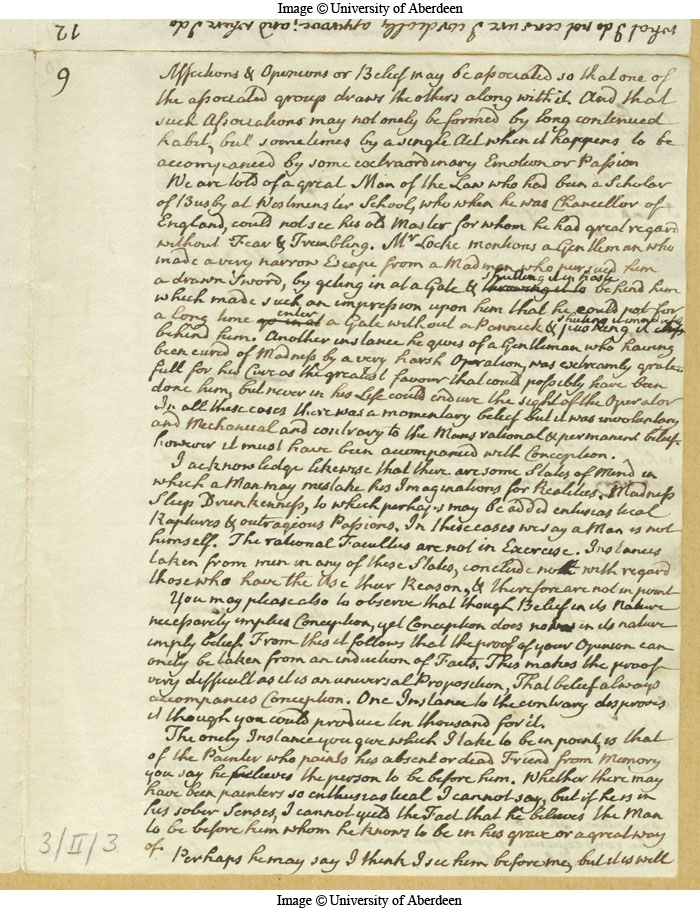 Image © University of Aberdeen
what I do not censure I cordially approve; and where I do
12
9
Affections & Opinions or Belief may be associated so that one of
the associated group draws the others along with it. And that
such Associations may not onely be formed by long continued
habit, but sometimes by a single Act when it happens to be
accompanied by some extraordinary Emotion or Passion
We are told of a great Man of the Law who had been a Scholar
of Busby at Westminster School, who when he was Chancellor of
England, could not see his old Master for whom he had great regard
without Fear & Trembling. Mr Locke mentions a Gentleman who
made a very narrow Escape from a Madman who pursued him
a drawn Sword, by geting in at a Gate & shutting it in haste behind him
which made such an impression upon him that he could not for
a long time enter at a Gate without a Pannick & shuting it
behind him. Another instance he gives of a Gentleman who having
been cured of Madness by a very harsh Operation, was extreamly grate-
full for his Cure as the greatest favour that could possibly have been
done him, but never in his Life could endure the sight of the Operator
In all these cases there was a momentary belief but it was involuntary
and Mechanical and contrary to the Mans rational & permanent belief-
however it must have been accompanied with Conception.
I acknowledge likewise that there are some States of Mind in
which a Man may mistake his Imaginations for Realities. Madness
Sleep Drunkenness, to which perhaps may be added enthusiastical
Raptures & outragious Passions. In these cases we say a Man is not
himself. The rational Faculties are not in Exercise. Instances
taken from men in any of these States, conclude not with regard
those who have the Use their Reason, & therefore are not in point
You may please also to observe that though Belief in its Nature
necessarily implies Conception, yet Conception does not in its nature
imply belief. From this it follows that the proof of your Opinion can
onely be taken from an induction of Facts. This makes the proof
very difficult as it is an universal Proposition, That belief always
accompanies Conception. One Instance to the contrary disproves
it though you could produce ten thousand for it.
The onely Instance you give which I take to be in point, is that
of the Painter who paints his absent or dead Friend from Memory
you say he believes the person to be before him. Whether there may
have been painters so enthusiastical I cannot say, but if he is in
his sober Senses, I cannot yeild the Fact that he believes the Man
to be before him whom he knows to be in his grave or a great way
of
Perhaps he may say I think I see him before me, but it is well
3/II/3
Image © University of Aberdeen